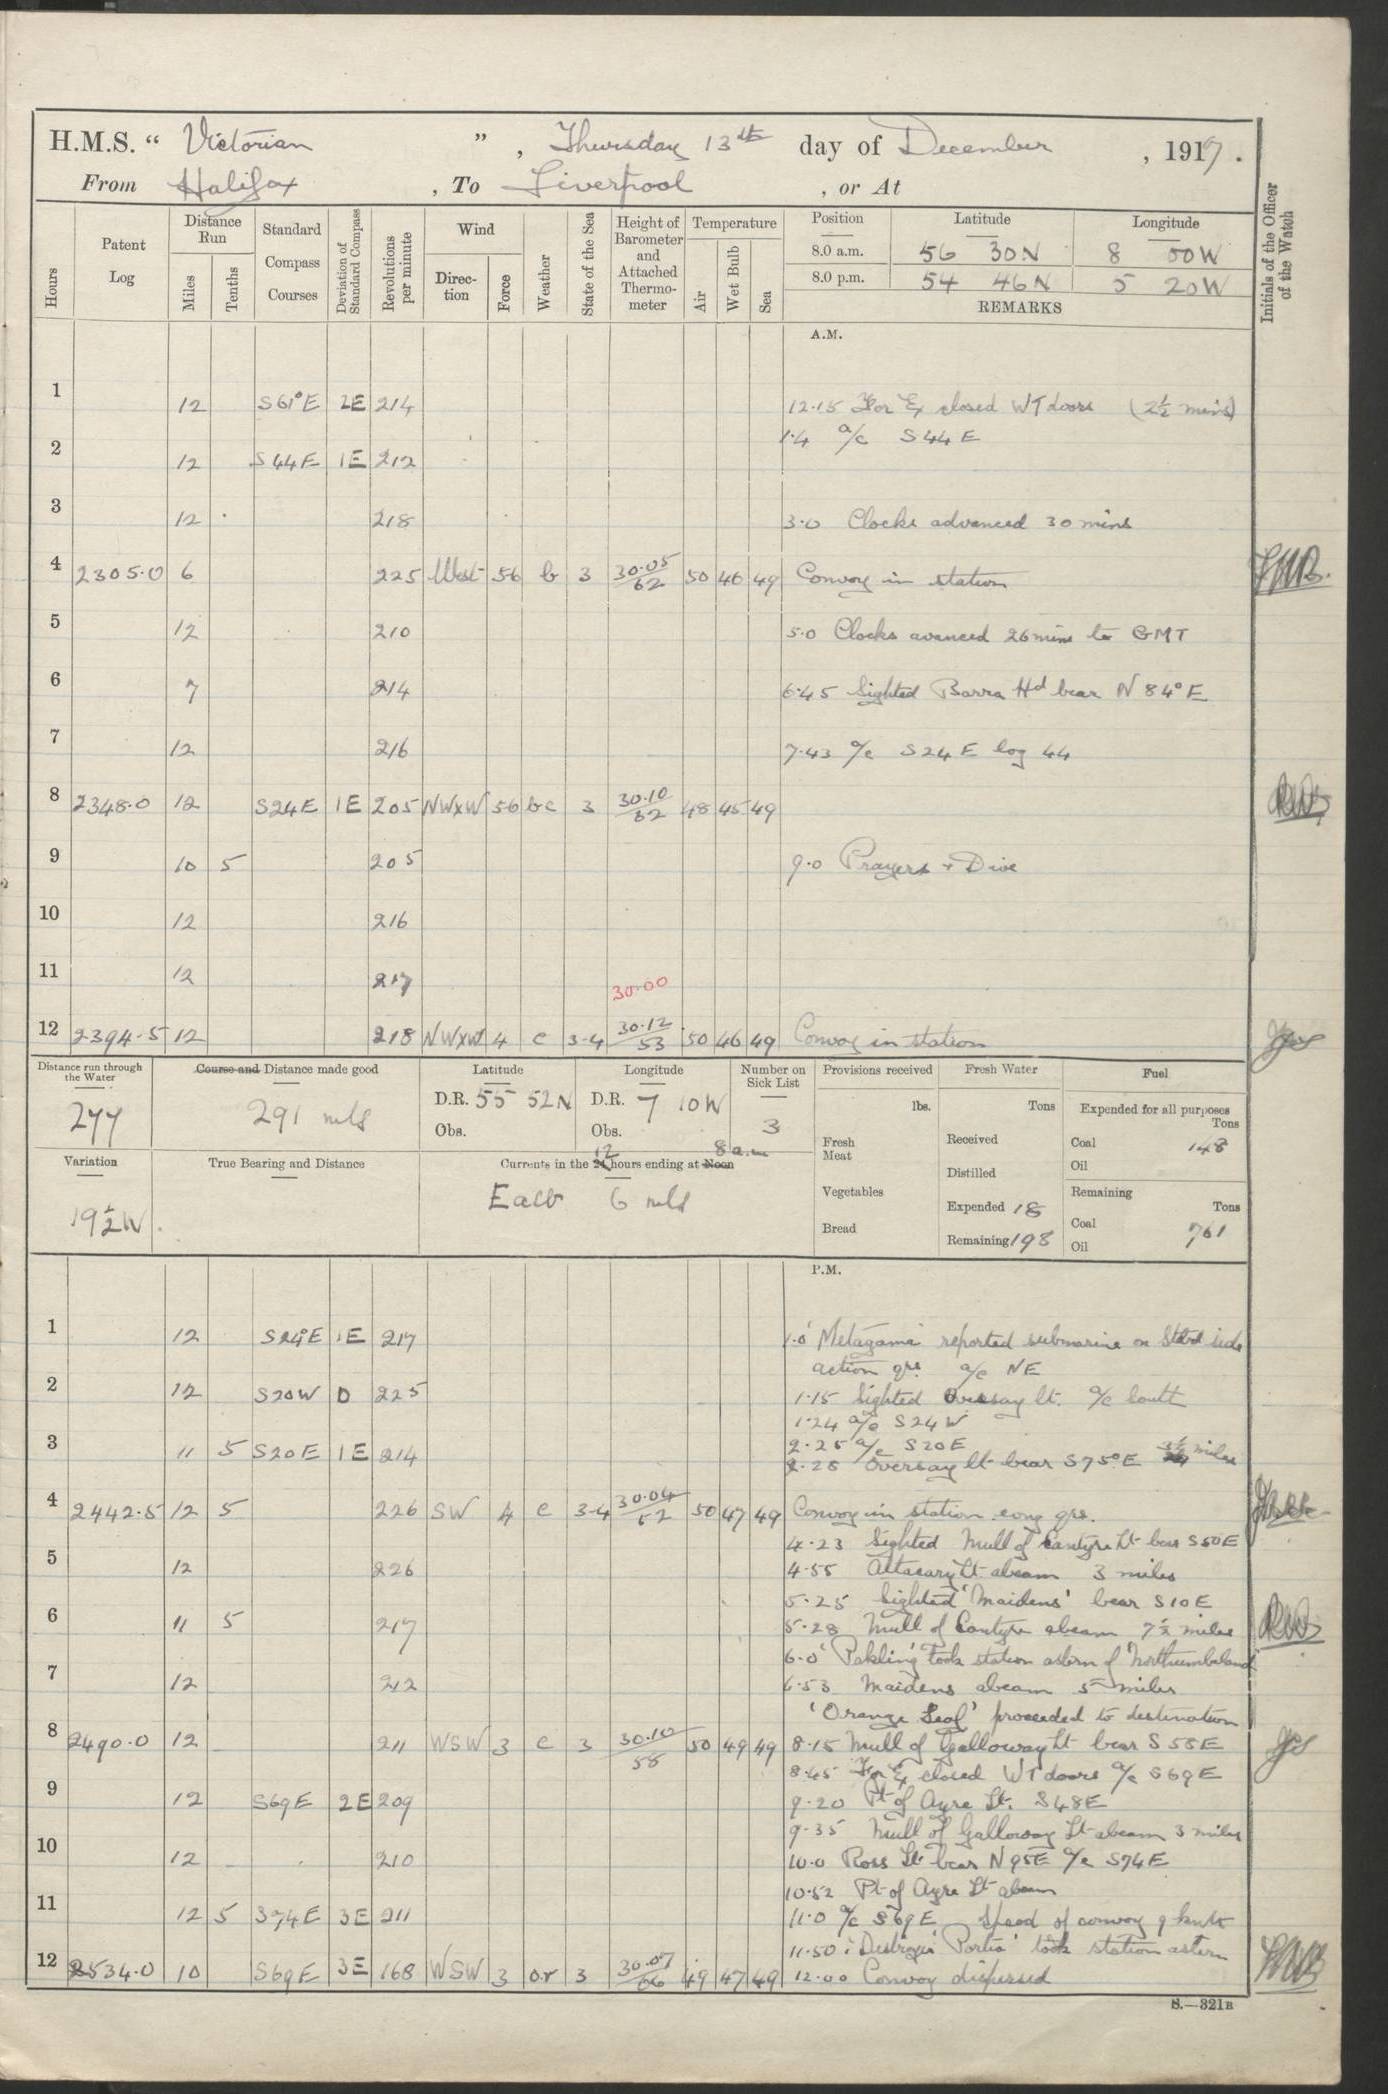 H.M.S. “ Victorian ” , Thursday 13th day of December , 1917 .
From Halifax , To Liverpool , or At
Hours
Patent Log
Distance Run
Miles
Tenths
Standard Compass Courses
Deviation of Standard Compass
Revolutions per minute
Wind
Direction
Force
Weather
State of the Sea
Height of Barometer and Attached Thermometer
Temperature
Air
Wet Bulb
Sea
Position Latitude Longitude
8.0 a.m. 56 30N 8 00W
8.0 p.m. 54 46N 5 20W
REMARKS
Initials of the Officer of the Watch
A.M.
1 12 S61°E 2E 214 12.15 For Ex closed WT doors (2½ mins)
1.4 a/c S44E
2 12 S44E 1E 212
3 12 218 3.0 Clocks advanced 30 mins
4 2305.0 6 225 West 56 b 3 30.05/62 50 46 49 Convoy in station
5 12 210 5.0 Clocks avanced 26 mins to GMT
6 7 214 6.45 Sighted Barra Hd bear N 84°E
7 12 216 7.43 a/c S24E log 44
8 2348.0 12 S24E 1E 205 NWxW 56 bc 3 30.10/52 48 45 49
9 10 5 205 9.0 Prayers + Divs
10 12 216
11 12 217
30.00
12 2394.5 12 218 NWxW 4 c 3-4 30.12/53 50 46 49 Convoy in station
Distance run through the Water
277
Course and Distance made good
291 mls
Latitude
D.R. 55 52N
Obs.
Longitude
D.R. 7 10W
Obs.
Number on Sick List
3
Provisions received
lbs.
Fresh Meat
Vegetables
Bread
Fresh Water
Tons
Received
Distilled
Expended 18
Remaining 198
Fuel
Expended for all purposes
Tons
Coal 148
Oil
Remaining
Tons
Coal 761
Oil
Variation
19½W.
True Bearing and Distance
12 8 a.m
Currents in the 24 hours ending at Noon
East 6 mls
P.M.
1 12 S24°E 1E 217 1.0 'Metagama' reported submarine on Stbd side
action qrs. a/c NE
2 12 S20W 0 225 1.15 Sighted Oversay lt. a/c South
1.24 a/c S24W
2.25 a/c S20E
3 11 5 S20E 1E 214 2.28 Oversay lt bear S75°E 3½ miles
4 2442.5 12 5 226 SW 4 c 3-4 30.04/52 50 47 49 Convoy in station evng qrs.
4.23 Sighted Mull of Cantyre Lt bear S50E
5 12 226 4.55 Altacarry Lt abeam 3 miles
5.25 Sighted 'Maidens' bear S10E
6 11 5 217 5.28 Mull of Cantyre abeam 7½ miles
6.0 took station astern of 'Northumberland'
7 12 212 6.53 Maidens abeam 5 miles
'Orange Leaf' proceeded to destination
8 2490.0 12 211 WSW 3 c 3 30.10/58 50 49 49 8.15 Mull of Galloway Lt bear S55E
8.45 For Ex closed WT doors a/c S69E
9 12 S69E 2E 209 9.20 Pt of Ayre Lt. S48E
9.35 Mull of Galloway Lt abeam 3 miles
10 12 210 10.0 Ross Lt bear N95E a/c S74E
10.52 Pt of Ayre Lt abeam
11 12 5 S74E 3E 211 11.0 a/c S69E Speed of convoy 9 knots
11.50 Destroyer 'Portia' took station astern
12 2534.0 10 S69E 3E 168 WSW 3 or 3 30.07/66 49 47 49 12.00 Convoy dispersed
S.—321B